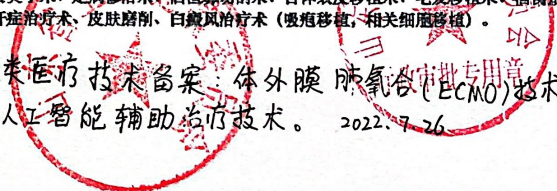 汗症治疗术、皮肤磨削、白癜风治疗术（吸疱移植，相关细胞移植）。
类医疗技术备案：体外膜肺氧合(ECMO)技术
人工智能辅助治疗技术。 2022.7.26
审批专用章